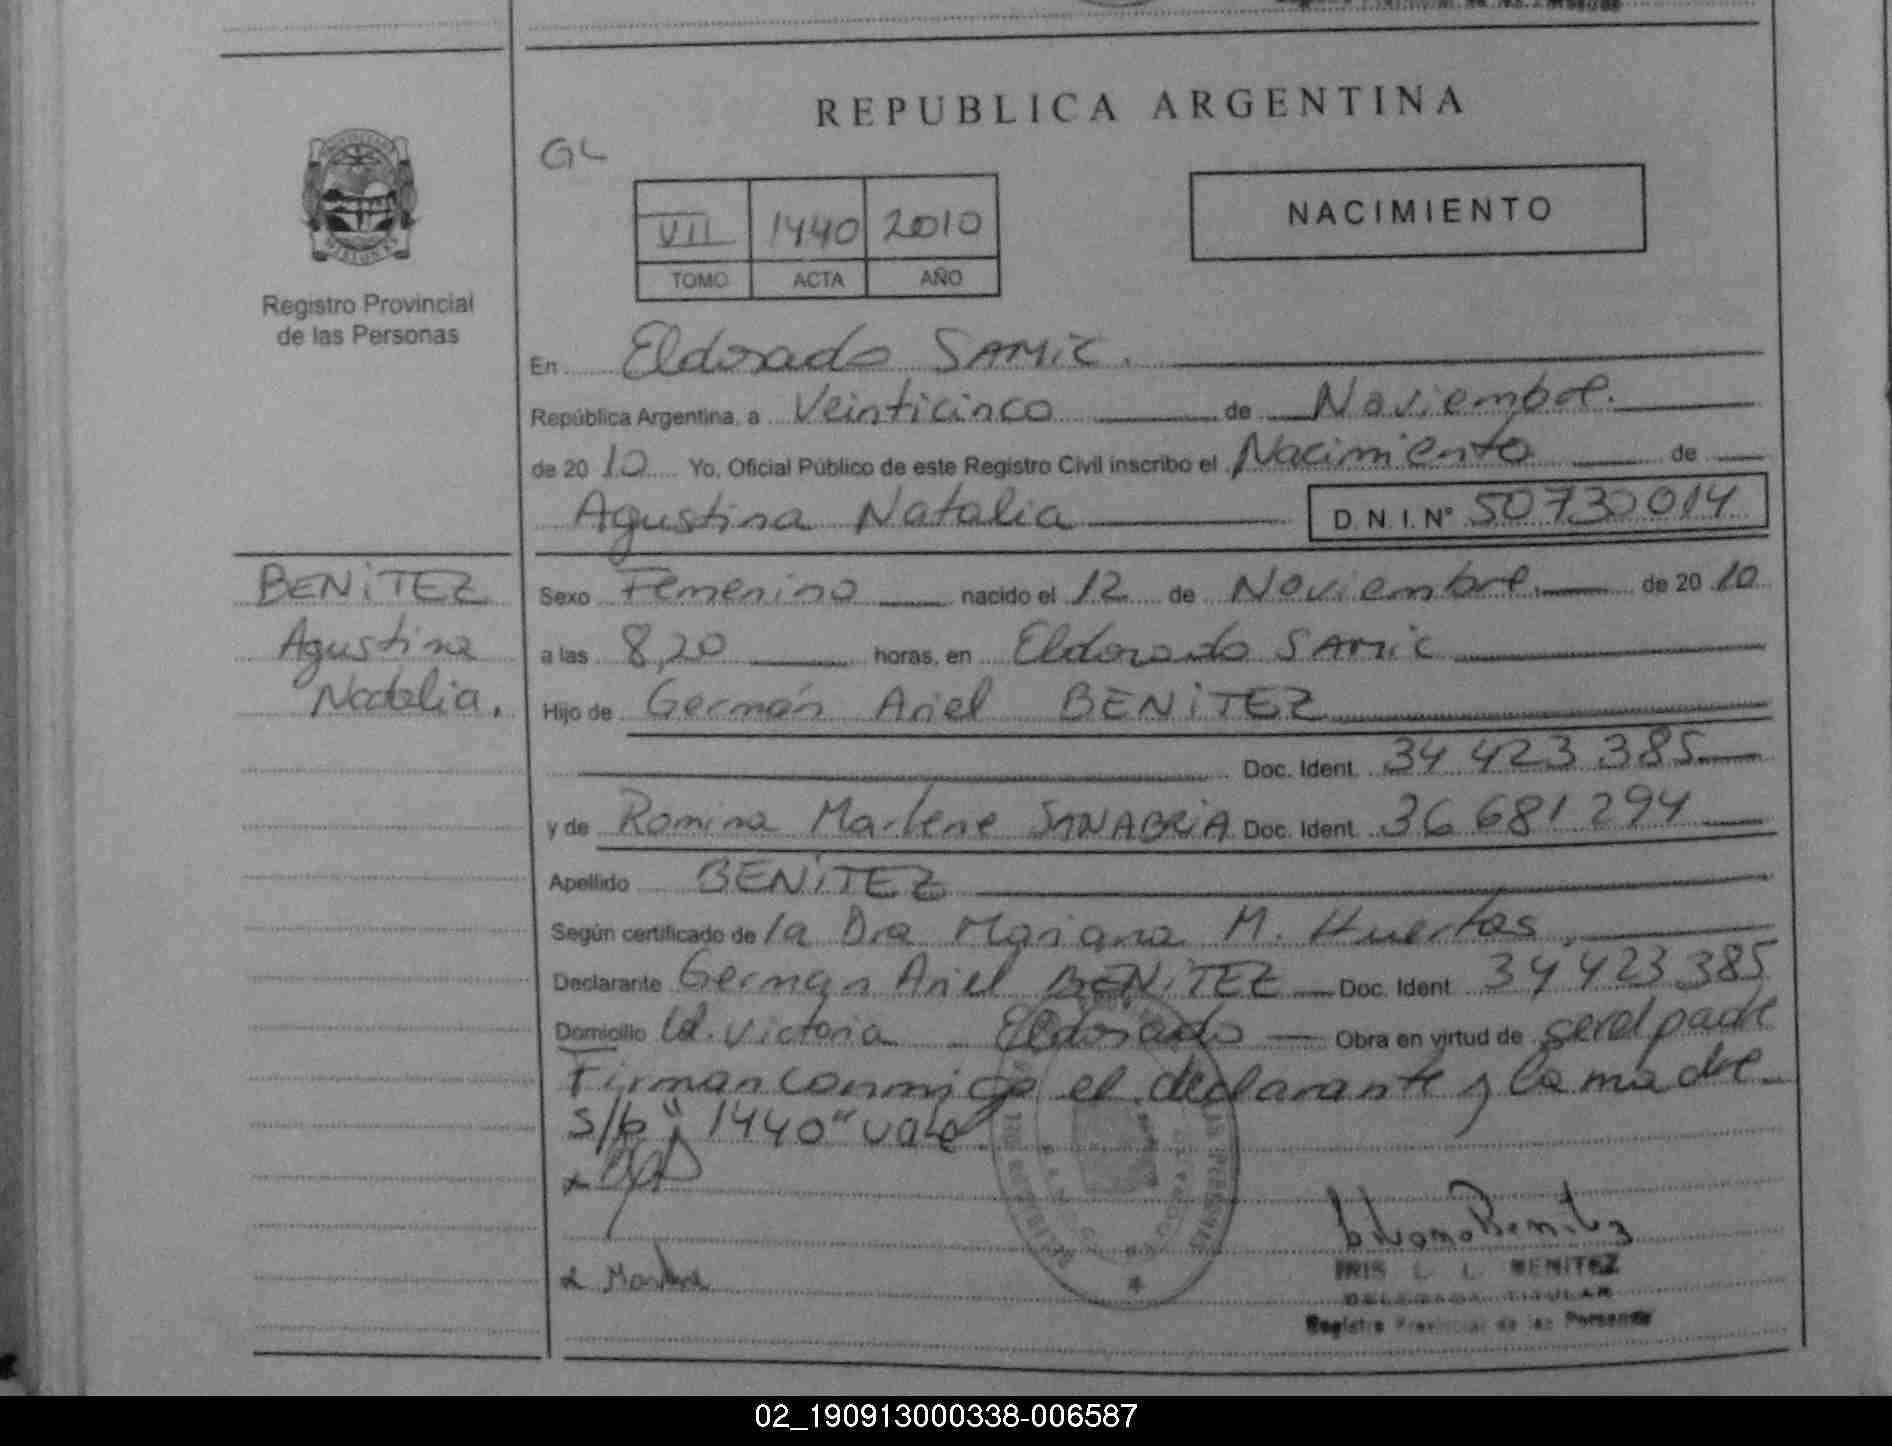 REPUBLICA ARGENTINA
GL
VII 1440 2010
TOMO ACTA AÑO
NACIMIENTO
Registro Provincial
de las Personas
En Eldorado SAMIC.
República Argentina, a Veinticinco de Noviembre.
de 2010 Yo, Oficial Público de este Registro Civil inscribo el Nacimiento de
Agustina Natalia D.N.I. N° 50730014
BENITEZ
Agustina
Natalia.
Sexo Femenino nacido el 12 de Noviembre. de 2010
a las 8,20 horas, en Eldorado SAMIC
Hijo de Germán Ariel BENITEZ
Doc. Ident. 34 423 385
y de Romina Marlene SANABRIA Doc. Ident. 36 681 294
Apellido BENITEZ
Según certificado de la Dra Mariana M. Huertas.
Declarante German Ariel BENITEZ Doc. Ident. 34 423 385
Domicilio Victoria Eldorado Obra en virtud de ser el padre
Firman conmigo el declarante y la madre.
S/b "1440" vale.
Benitez
IRIS L. L. BENITEZ
DELEGADA TITULAR
Registro Provincial de las Personas
02_190913000338-006587